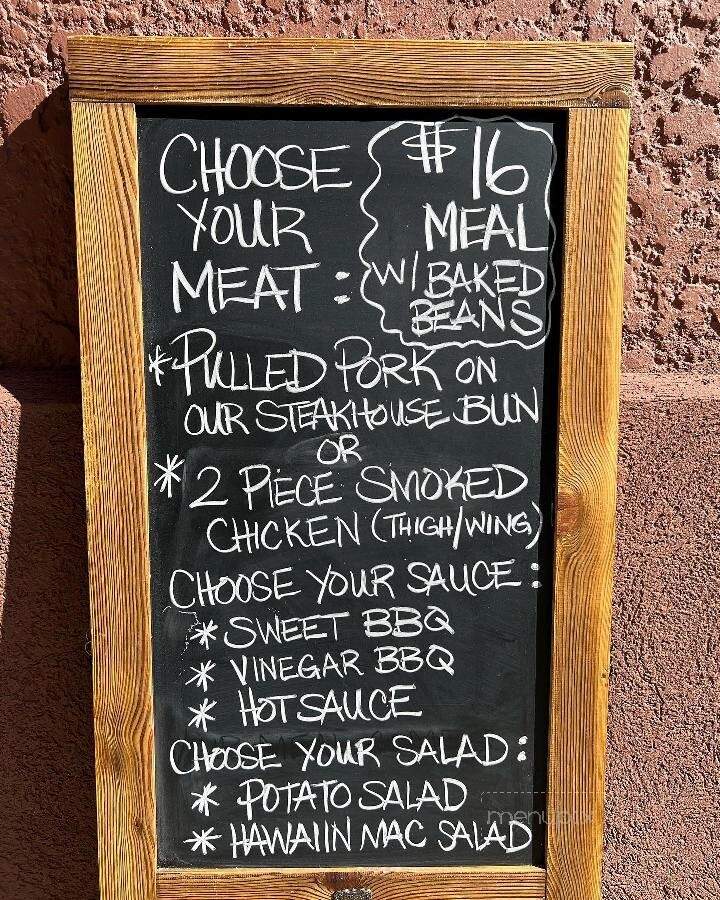 CHOOSE
YOUR
MEAT:
$16
MEAL
W/ BAKED
BEANS
* PULLED PORK ON
OUR STEAKHOUSE BUN
OR
* 2 PIECE SMOKED
CHICKEN (THIGH/WING)
CHOOSE YOUR SAUCE:
* SWEET BBQ
* VINEGAR BBQ
* HOT SAUCE
CHOOSE YOUR SALAD:
* POTATO SALAD
* HAWAIIN MAC SALAD
menupix